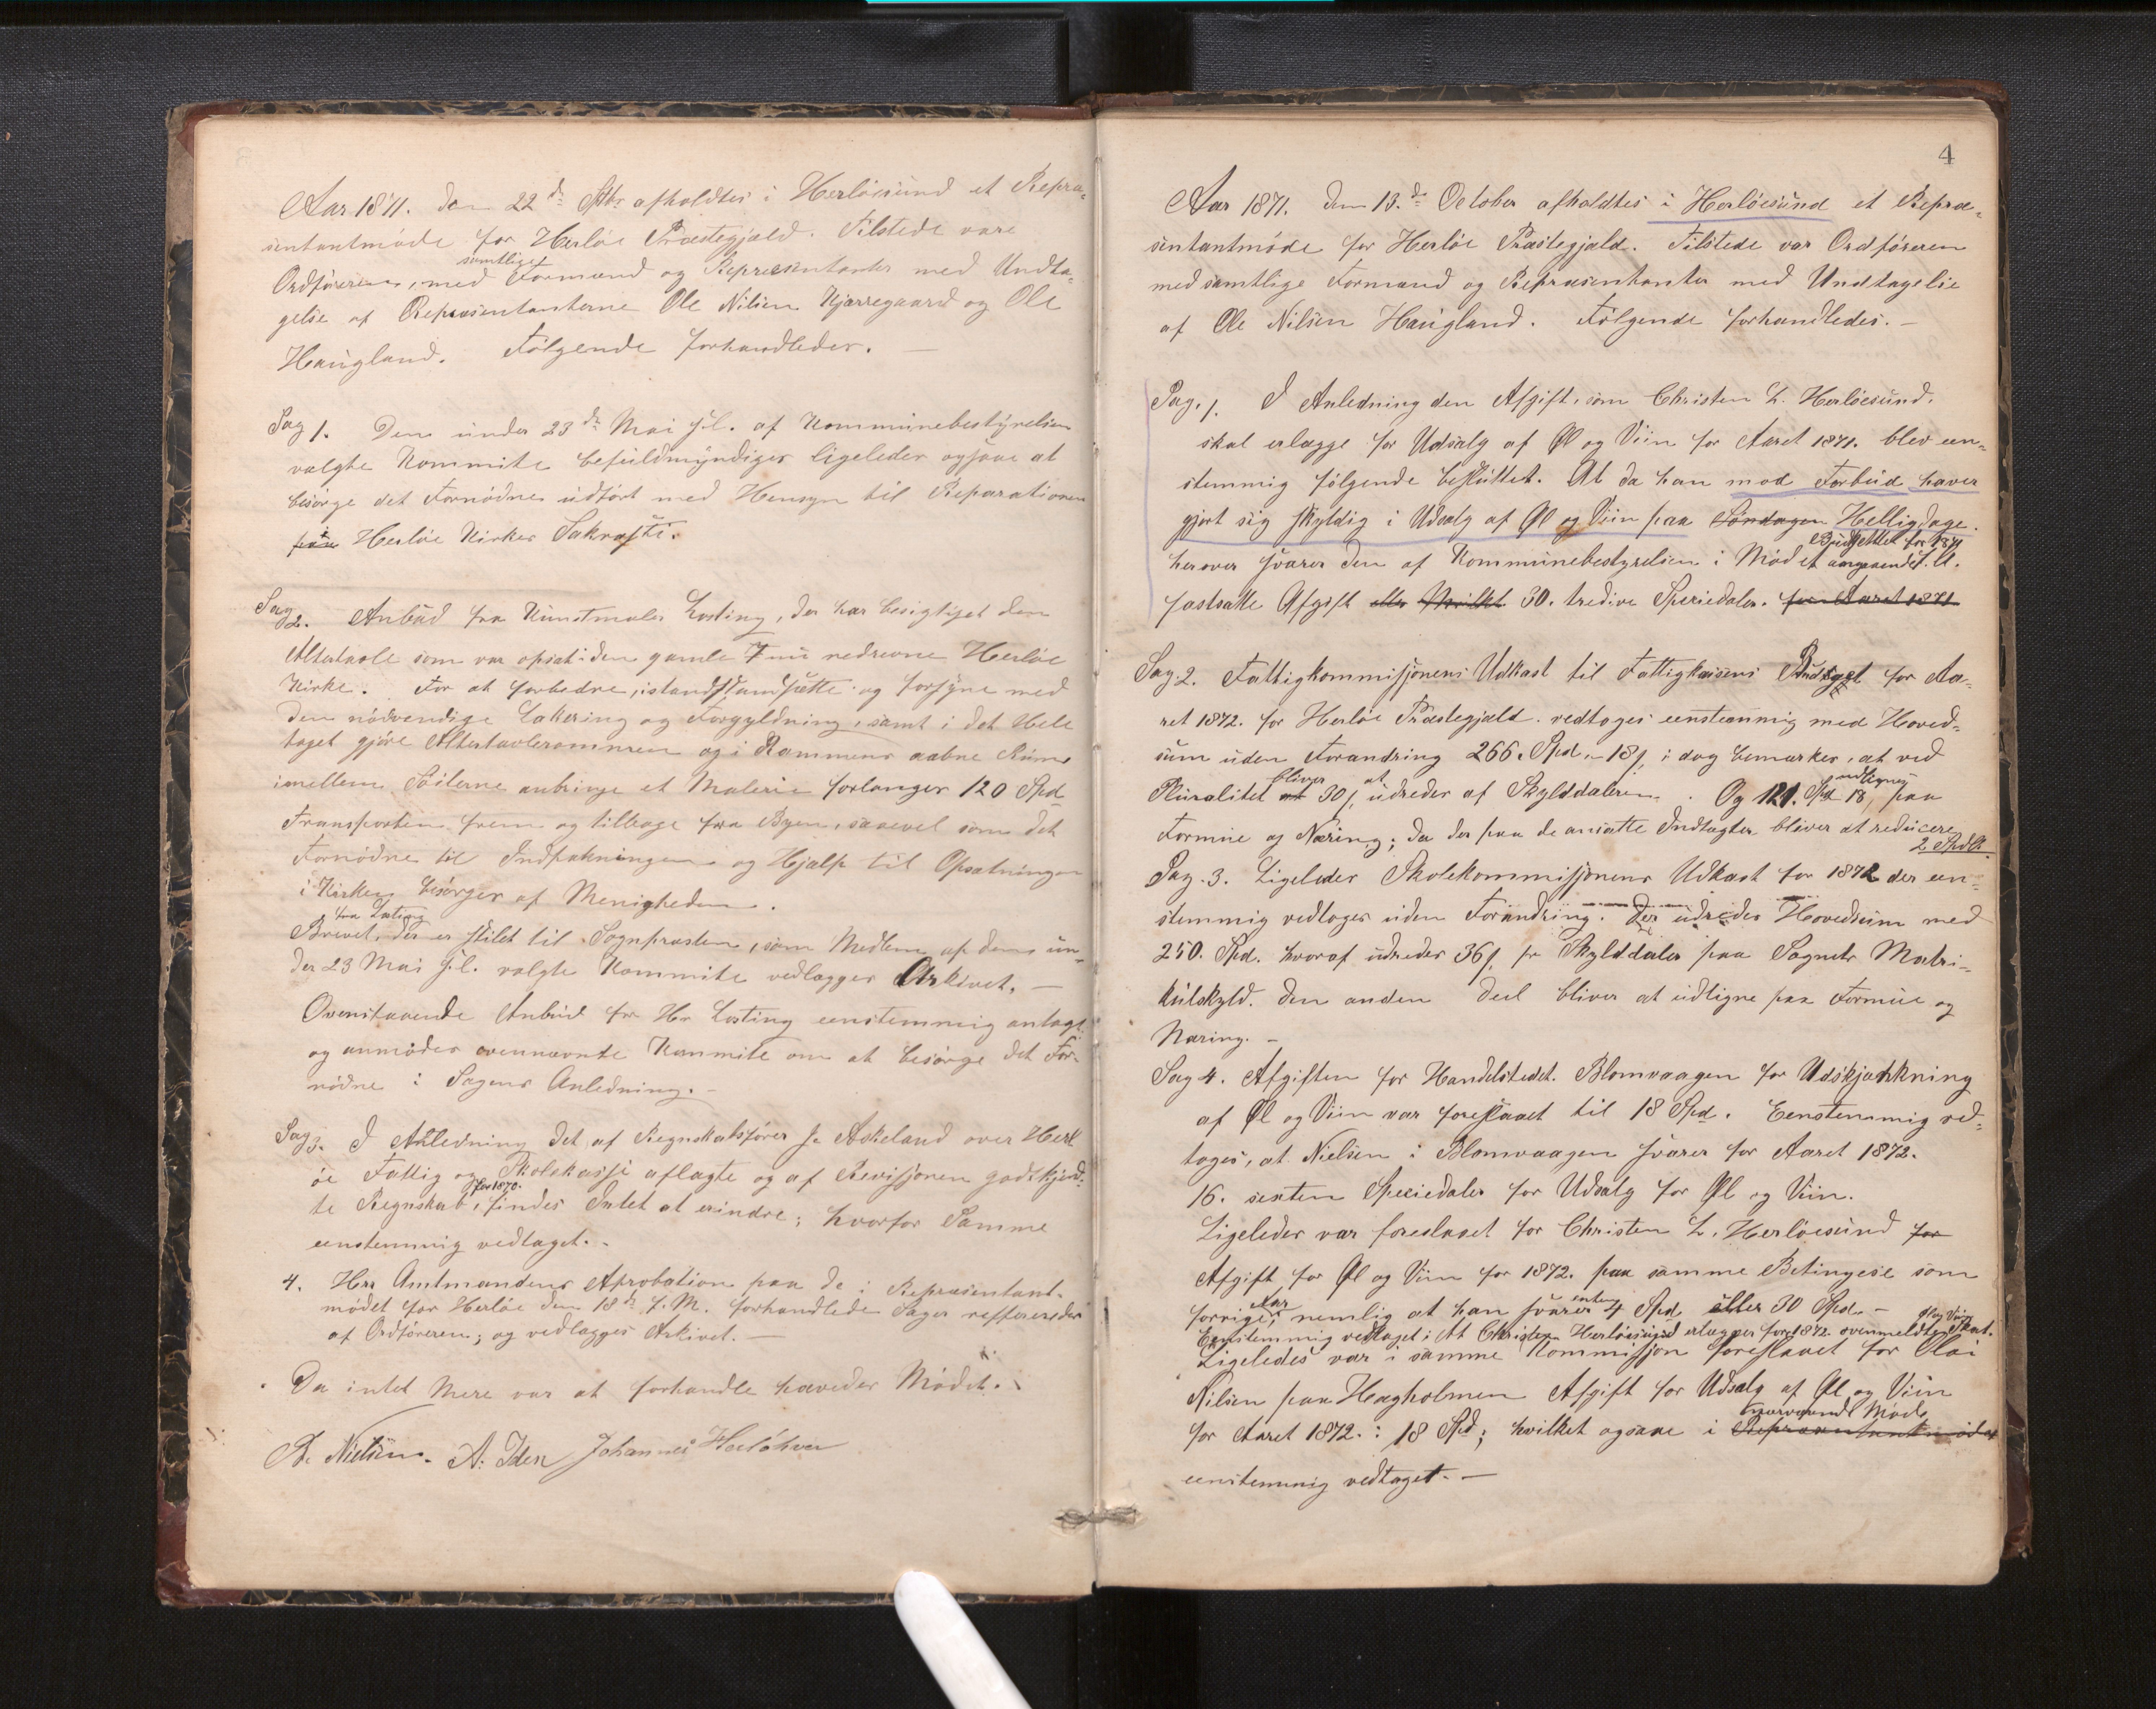 Aar 1871. den 22de Stbr afholdtes i Herlöesund et Repræ-
sentantmöde for Herlöe Præstegjæld. Tilstede vare
Ordföreren, med samtlige Formænd og Repræsentanter med Undta-
gelse af Repræsentanterne Ole Nilsen Kjærregaard og Ole
Haugland. Følgende forhandledes. —
Sag 1. Den under 23de Mai f.l. af Kommunebestyrelsen
valgte Kommite befuldmyndiges ligeledes ogsaa at
besörge det Fornödne udfört med Hensyn til Reparationen
Herlöe Kirkes Sakresti.
Sag 2. Anbud fra Kunstmaler Losting, der har besigtiget den
Altertavle som var opsat i den gamle nu nedrevne Herlöe
Kirke. For at forbedre, istandsætte og forsyne med
den nödvendige Lakering og Forgyldning, samt i det Hele
taget gjöre Altertavlerammen og i Rammens aabne Rum
imellem Söilerne anbringe et Malerie forlanger 120 Spd
Transporten frem og tilbage fra Byen, saavel som det
Fornödne til Indpakningen og Hjælp til Opsætningen
i Kirken besörges af Menigheden.
Brevet fra Losting, der er stilet til Sognpræsten, som Medlem af den un-
der 23 Mai f.l. valgte Kommite vedlægges Arkivet. —
Ovenstaaende Anbud fra Hr Losting eenstemmig antaget
og anmodes ovennævnte Kommite om at besörge det For-
nödne i Sagens Anledning. —
Sag 3. I Anledning det af Regnskabsförer J. Askeland over Herl
öe Fattig og Skolekasse aflagte og af Revisjonen godtkjend-
te Regnskab for 1870, findes Intet at erindre; hvorfor Samme
eenstemmig vedtaget. -
4. Herr Amtmandens Aprobation paa de i Repræsentant-
mödet for Herlöe den 18de f.M. forhandlede Sager refereredes
af Ordföreren; og vedlægges Arkivet. —
Da intet Mere var at forhandle hævedes Mödet.
Nielsen. A. Iden Johannes Herlöhver
4
Aar 1871. den 13.de October afholdtes i Herlöesund et Repræ-
sentantmöde for Herlöe Præstegjæld. Tilstede var Ordföreren
med samtlige Formænd og Repræsentanter med Undtagelse
af Ole Nilsen Haugland. Følgende forhandledes. —
Sag. 1. I Anledning den Afgift, som Christen L. Herlöesund,
skal erlægge for Udsalg af Øl og Viin for Aaret 1871. blev een-
stemmig følgende besluttet. At da han mod Forbud haver
gjort sig skyldig i Udsalg af Øl og Viin paa Söndagen Helligdage.
Budgettet for 1871
herover svarer den af Kommunebestyrelsen i Mödet angaaende
fastsatte Afgift eller Hvilket 30. tredive Speciedaler. for Aaret 1871
Sag. 2. Fattigkommisjonens Udkast til Fattigkassens Budget for Aa-
ret 1872. for Herlöe Præstegjæld vedtages eenstemmig med Hoved-
sum uden Forandring 266. Spd. 18 ß, i dag bemærkes, at ved
Pluralitet bliver at 30 ß udredes af Skylddaleren. Og 121. Spd 18, udlignes paa
Formue og Næring; da der paa de ansatte Indtægter bliver at reducere
2 Spdlr.
Sag. 3. Ligeledes Skolekommissjonens Udkast for 1872 der een-
stemmig vedtages uden Forandring. Der udredes Hovedsum med
250. Spd. hvoraf udredes 36 ß pr Skylddaler paa Sognets Matri-
kulskyld. Den anden Deel bliver at udligne paa Formue og
Næring. —
Sag 4. Afgiften for Handelstedet Blomvaagen for Udskjænkning
af Øl og Viin var foreslaaet til 18 Spd. Eenstemmig ved-
tages, at Nielsen i Blomvaagen svarer for Aaret 1872.
16. sexten Speciedaler for Udsalg for Øl og Viin.
Ligeledes var foreslaaet for Christen L. Herlöesund for
Afgift for Øl og Viin for 1872. paa samme Betingelse som
forrige Aar, nemlig at han svarer enten 4 Spd eller 30 Spd. —
Eenstemmig vedtaget; At Christen Herlöesund erlægger for 1872. ovenmeldte Øl og Viin Skat.
Ligeledes var i samme Kommissjon foreslaaet for Olai
Nilsen paa Hagholmen Afgift for Udsalg af Øl og Viin
for Aaret 1872.: 18 Spd; hvilket ogsaa i nærværende Möde Repræsentantmödet
eenstemmig vedtaget. —